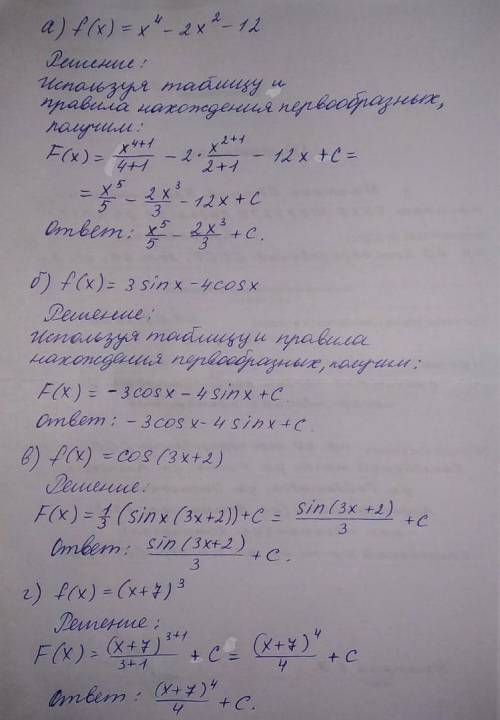 а) f(x) = x⁴ - 2x² - 12
Решение:
Используя таблицу и
правила нахождения первообразных,
получим:
F(x) = x⁴⁺¹/4+1 - 2 · x²⁺¹/2+1 - 12x + C =
= x⁵/5 - 2x³/3 - 12x + C
Ответ: x⁵/5 - 2x³/3 + C.
б) f(x) = 3sinx - 4cosx
Решение:
Используя таблицу и правила
нахождения первообразных, получим:
F(x) = -3cosx - 4sinx + C.
Ответ: -3cosx - 4sinx + C.
в) f(x) = cos(3x+2)
Решение:
F(x) = 1/3 (sinx(3x+2)) + C = sin(3x+2)/3 + C
Ответ: sin(3x+2)/3 + C.
г) f(x) = (x+7)³
Решение:
F(x) = (x+7)³⁺¹/3+1 + C = (x+7)⁴/4 + C
Ответ: (x+7)⁴/4 + C.